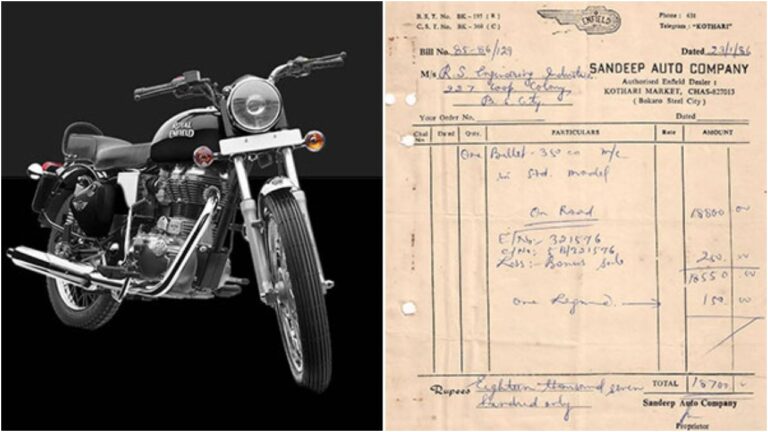 ROYAL
ENFIELD
B. S. T. No. BK-195 ( R )
C. S. T. No. BK-360 ( C )
ENFIELD
Phone : 631
Telegram : "KOTHARI"
Bill No. 85-86/129
Dated 23/1/86
SANDEEP AUTO COMPANY
M/s R. S. Engineering Industries
Authorised Enfield Dealer :
227 Coop. Colony
KOTHARI MARKET, CHAS-827013
B. S. City
( Bokaro Steel City )
Your Order No.
Dated
Chal No Dated Qnty. PARTICULARS Rate AMOUNT
One Bullet - 350 cc m/c
in Std. model
On Road 18800 00
E/No:- 321576
C/No:- 5B/321576
Less:- Bonus 250. 00
18550 00
One Legguard 150 00
Rupees Eighteen thousand seven TOTAL 18700
hundred only
Sandeep Auto Company
Proprietor